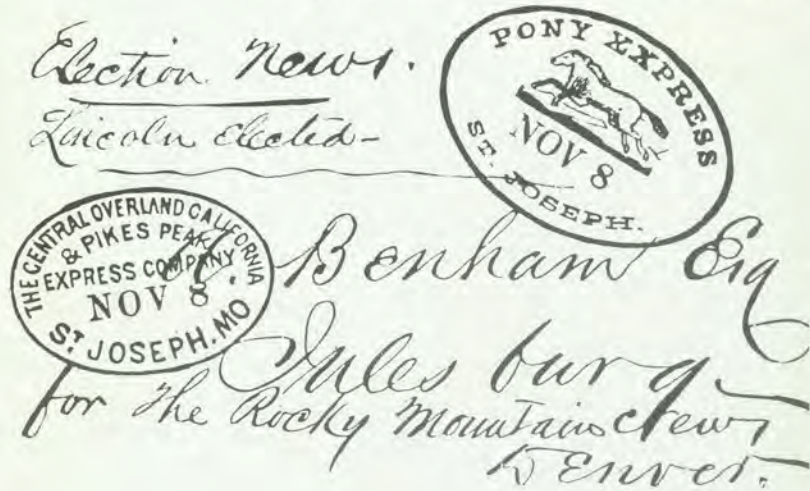 Election News.
Lincoln elected-
PONY EXPRESS
NOV 8
ST. JOSEPH.
THE CENTRAL OVERLAND CALIFORNIA
& PIKES PEAK
EXPRESS COMPANY
NOV 8
ST JOSEPH, MO
A. Benham Esq
Julesburg
for the Rocky Mountain News
Denver.